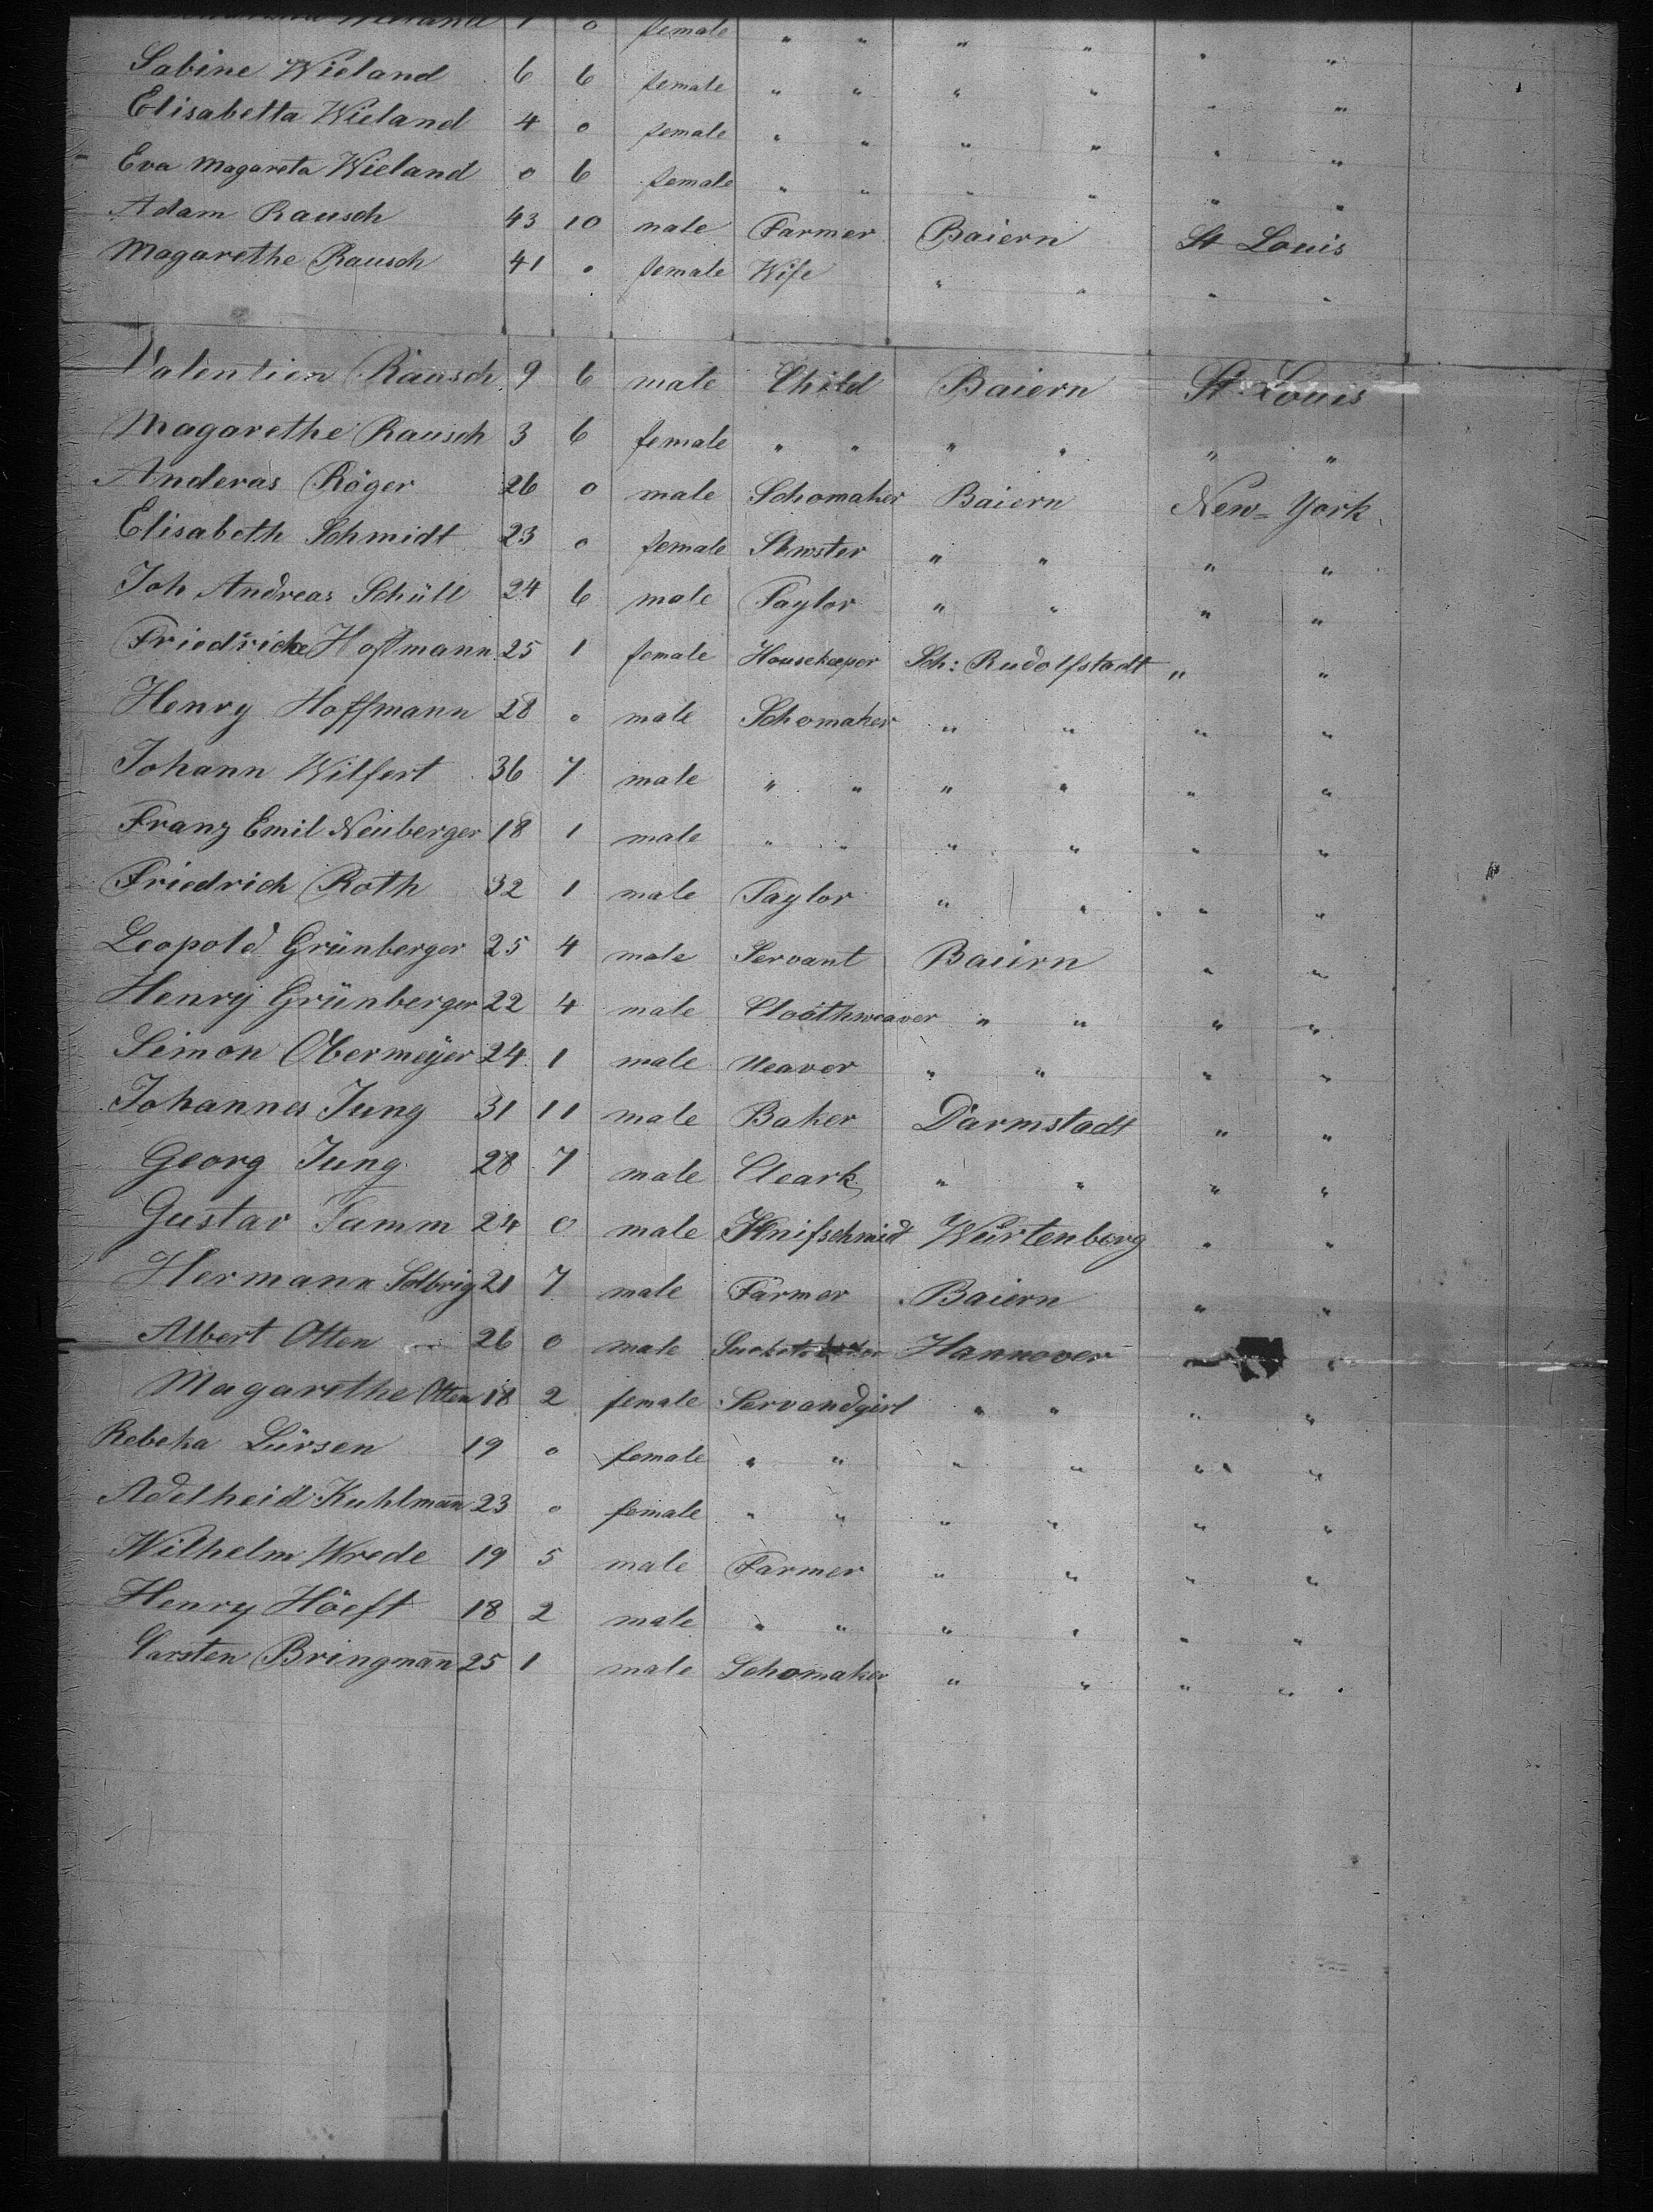 Wieland 1 0 female " " " " " "
Sabine Wieland 6 6 female " " " " " "
Elisabetta Wieland 4 0 female " " " " " "
Eva Magareta Wieland 0 6 female " " " " " "
Adam Rausch 43 10 male Farmer Baiern St Louis
Magarethe Rausch 41 0 female Wife " " " "
Valentien Rausch 9 6 male Child Baiern St Louis
Magarethe Rausch 3 6 female " " " " " "
Anderas Röger 26 0 male Schomaker Baiern New-York
Elisabeth Schmidt 23 0 female " " " "
Joh Andreas Schüll 24 6 male Taylor " " " "
Friedricke Hoffmann 25 1 female Housekeeper Sch: Rudolfstadt " "
Henry Hoffmann 28 0 male Schomaker " " " "
Johann Wilfert 36 7 male " " " " " "
Franz Emil Neuberger 18 1 male " " " " " "
Friedrich Roth 32 1 male Taylor " " " "
Leopold Grünberger 25 4 male Servant Baiern " "
Henry Grünberger 22 4 male Cloothweaver " " " "
Simon Obermeÿer 24 1 male Weaver " " " "
Johannes Jung 31 11 male Baker Darmstadt " "
Georg Jung 28 7 male Cleark " " " "
Gustav Tamm 24 0 male Knifschmidt Würtenberg " "
Hermann Solbrig 21 7 male Farmer Baiern " "
Albert Otten 26 0 male Hannover " "
Magarethe Otten 18 2 female Servandgirl " " " "
Rebeka Lürsen 19 0 female " " " " " "
Adelheid Kuhlmann 23 0 female " " " " " "
Wilhelm Wrede 19 5 male Farmer " " " "
Henry Höeft 18 2 male " " " " " "
Carsten Bringmann 25 1 male Schomaker " " " "